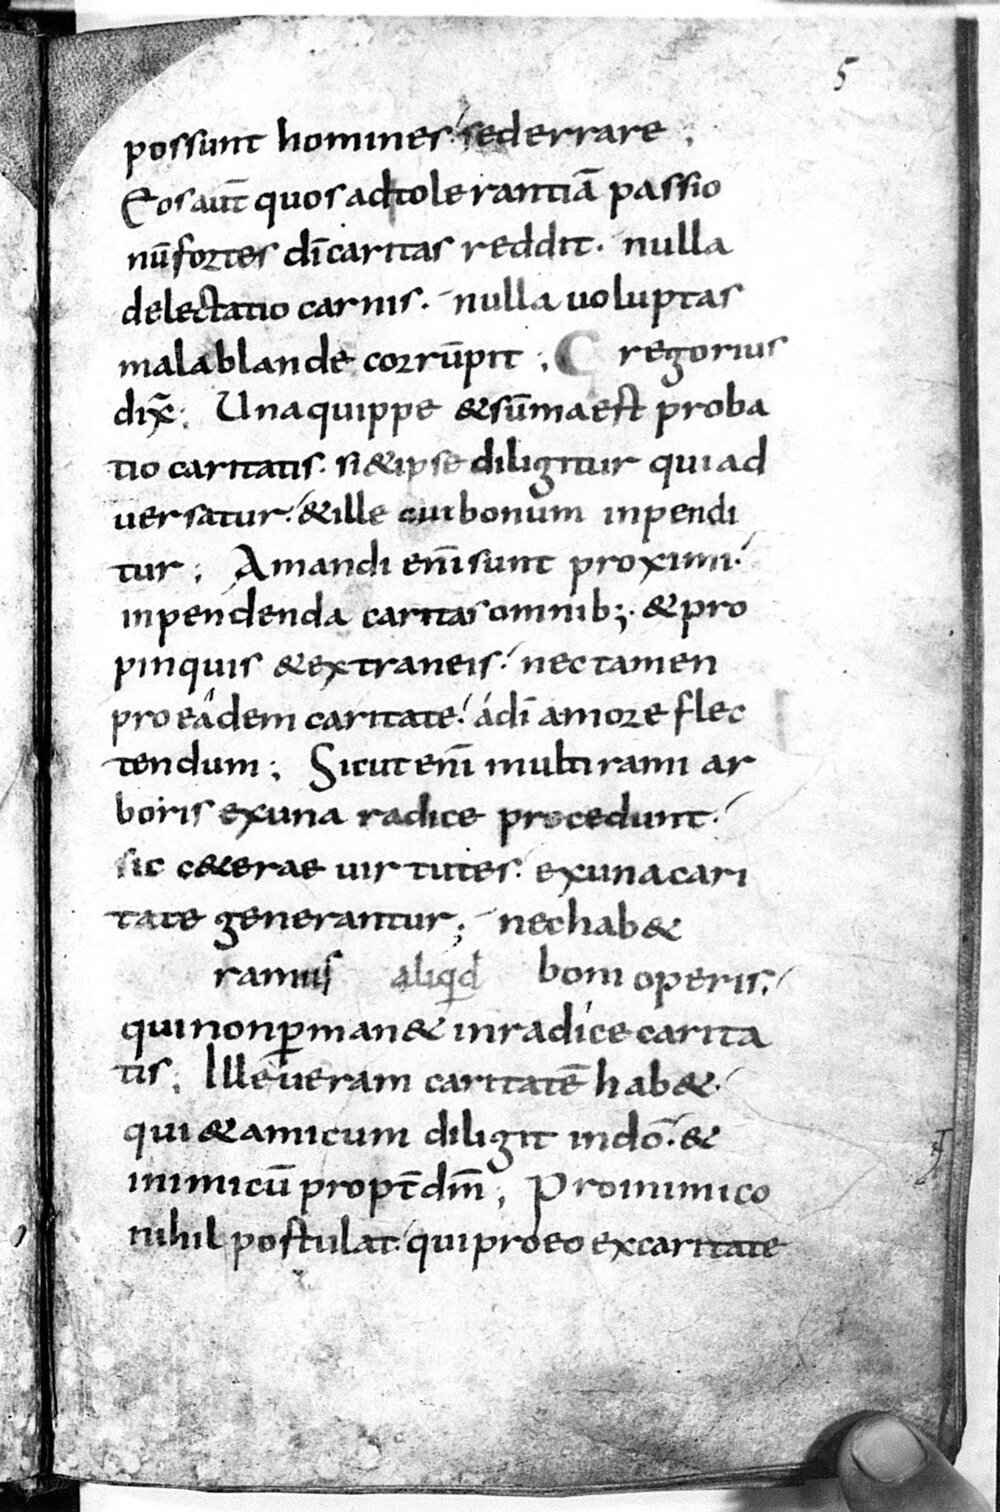 5
possunt homines. sed errare;
Eos aut̄ quos ad tolerantiā passio
nū fortes dī caritas reddit. nulla
delectatio carnis. nulla uoluptas
mala blande corrūpit; Gregorius
dix̄; Una quippe & sūma est proba
tio caritatis. si & ipse diligitur qui ad
uersatur. & ille cui bonum inpendi
tur; Amandi enī sunt proximi.
inpendenda caritas omnib;. & pro
pinquis & extraneis. nec tamen
pro eádem caritate. á dī amore flec
tendum; Sicut enī multi rami ar
boris ex una radice procedunt.
sic c&erae uirtutes. ex una cari
tate generantur; nec hab&
ramus aliqid boni operis.
qui non ꝑman& in radice carita
tis; Ille ueram caritatē hab&.
qui & amicum diligit in dō. &
inimicū propt̄ dm̄; Pro inimico
nihil postulat. qui pro eo ex caritate